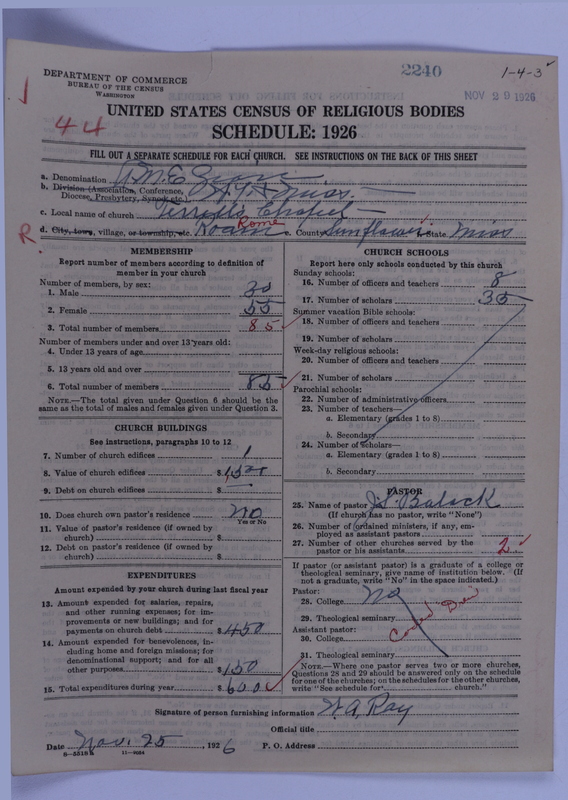 2240
1-4-3
DEPARTMENT OF COMMERCE
BUREAU OF THE CENSUS
WASHINGTON
NOV 29 1926
44
UNITED STATES CENSUS OF RELIGIOUS BODIES
SCHEDULE: 1926
FILL OUT A SEPARATE SCHEDULE FOR EACH CHURCH. SEE INSTRUCTIONS ON THE BACK OF THIS SHEET
a. Denomination A.M.E. Zion
b. Division (Association, Conference, Miss.
Diocese, Presbytery, Synod, etc.)
c. Local name of church Chapel
R. d. City, town, village, or township, etc. Rome e. County Sunflower f. State Miss
MEMBERSHIP
Report number of members according to definition of
member in your church
Number of members, by sex:
1. Male 30
2. Female 55
3. Total number of members 85
Number of members under and over 13 years old:
4. Under 13 years of age
5. 13 years old and over
6. Total number of members 85
NOTE.—The total given under Question 6 should be the
same as the total of males and females given under Question 3.
CHURCH BUILDINGS
See instructions, paragraphs 10 to 12
7. Number of church edifices 1
8. Value of church edifices $
9. Debt on church edifices $ —
10. Does church own pastor's residence No
Yes or No
11. Value of pastor's residence (if owned by
church) $
12. Debt on pastor's residence (if owned by
church) $
EXPENDITURES
Amount expended by your church during last fiscal year
13. Amount expended for salaries, repairs,
and other running expenses; for im-
provements or new buildings; and for
payments on church debt $ 450
14. Amount expended for benevolences, in-
cluding home and foreign missions; for
denominational support; and for all
other purposes $ 150
15. Total expenditures during year $ 600
CHURCH SCHOOLS
Report here only schools conducted by this church
Sunday schools:
16. Number of officers and teachers 8
17. Number of scholars 35
Summer vacation Bible schools:
18. Number of officers and teachers
19. Number of scholars
Week-day religious schools:
20. Number of officers and teachers
21. Number of scholars
Parochial schools:
22. Number of administrative officers
23. Number of teachers—
a. Elementary (grades 1 to 8)
b. Secondary
24. Number of scholars—
a. Elementary (grades 1 to 8)
b. Secondary
PASTOR
25. Name of pastor J.S. Balock
(If church has no pastor, write "None")
26. Number of ordained ministers, if any, em-
ployed as assistant pastors
27. Number of other churches served by the
pastor or his assistants 2
If pastor (or assistant pastor) is a graduate of a college or
theological seminary, give name of institution below. (If
not a graduate, write "No" in the space indicated.)
Pastor:
28. College No
29. Theological seminary
Assistant pastor:
30. College
31. Theological seminary
NOTE.—Where one pastor serves two or more churches,
Questions 28 and 29 should be answered only on the schedule
for one of the churches; on the schedules for the other churches,
write "See schedule for church."
Signature of person furnishing information Ray
Official title
Date Nov. 25, 1926 P. O. Address